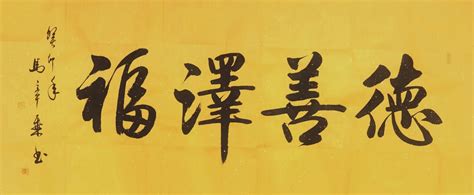 德善澤福
癸卯年
馬 书